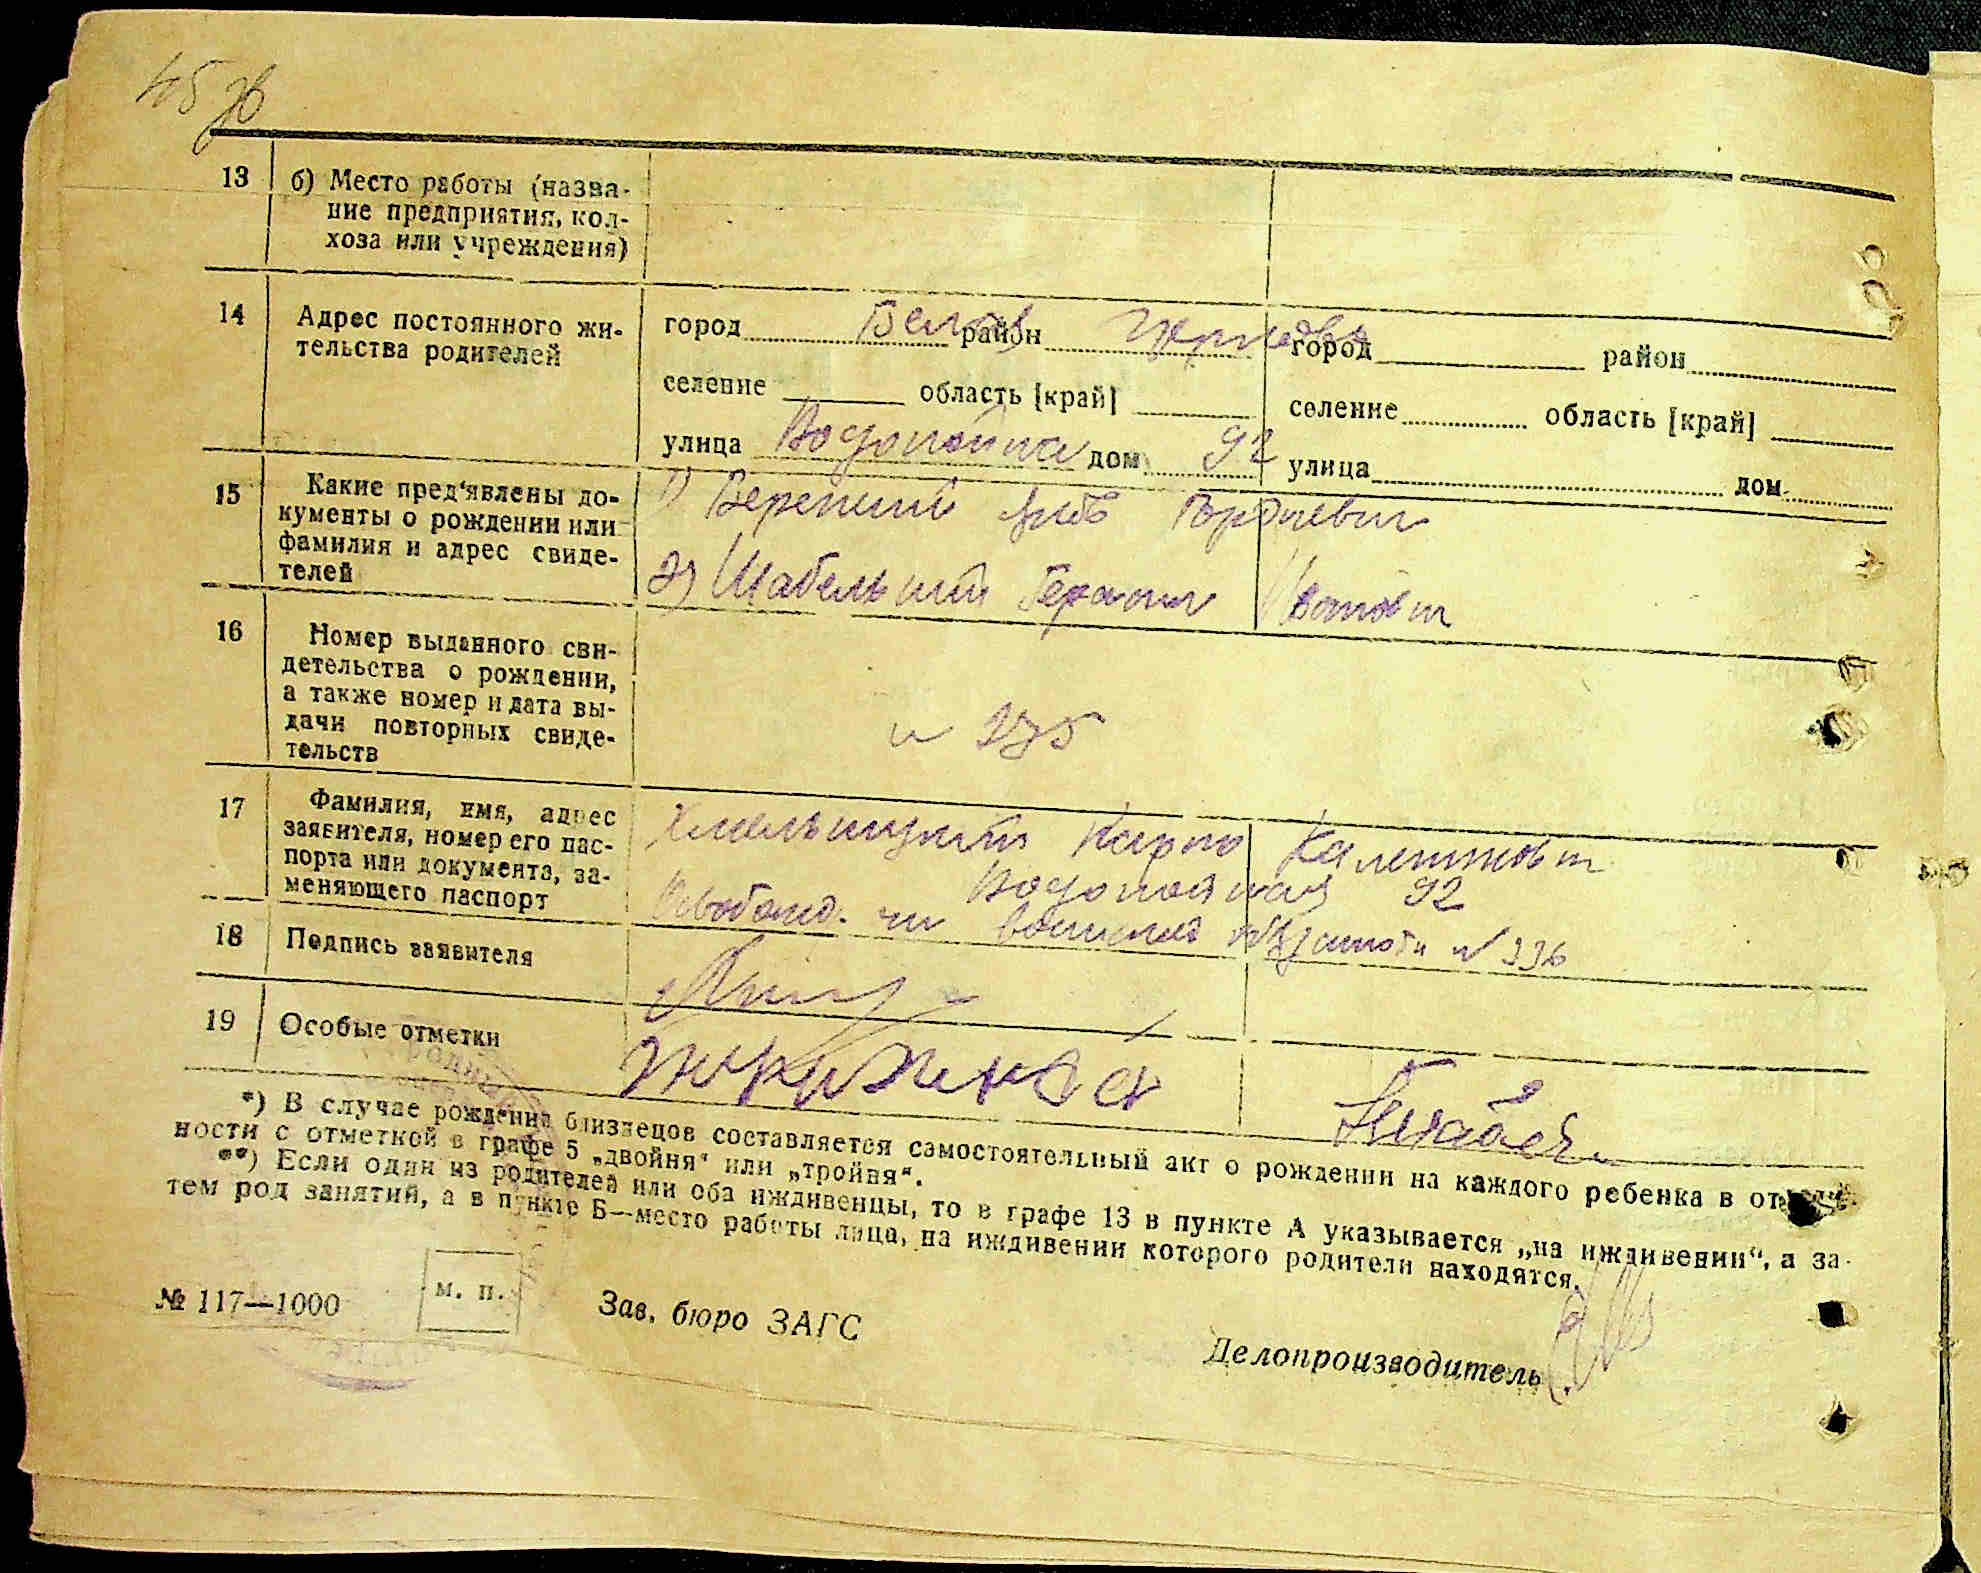 13 б) Место работы (назва-
ние предприятия, кол-
хоза или учреждения)
14 Адрес постоянного жи-
тельства родителей
город Белая район Церковь город район
селение область [край] селение область [край]
улица Водопойная дом 92 улица дом
15 Какие пред'явлены до-
кументы о рождении или
фамилия и адрес свиде-
телей
1)
2) Шабельний Герасим Иванович
16 Номер выданного сви-
детельства о рождении,
а также номер и дата вы-
дачи повторных свиде-
тельств
17 Фамилия, имя, адрес
заявителя, номер его пас-
порта или документа, за-
меняющего паспорт
Хмельницкий Карпо
Водопойная 92
18 Подпись заявителя
19 Особые отметки
*) В случае рождения близнецов составляется самостоятельный акт о рождении на каждого ребенка в отдель-
ности с отметкой в графе 5 „двойня“ или „тройня“.
**) Если один из родителей или оба иждивенцы, то в графе 13 в пункте А указывается „на иждивении“, а за-
тем род занятий, а в пункте Б—место работы лица, на иждивении которого родители находятся.
м. п.
№ 117—1000 Зав. бюро ЗАГС
Делопроизводитель